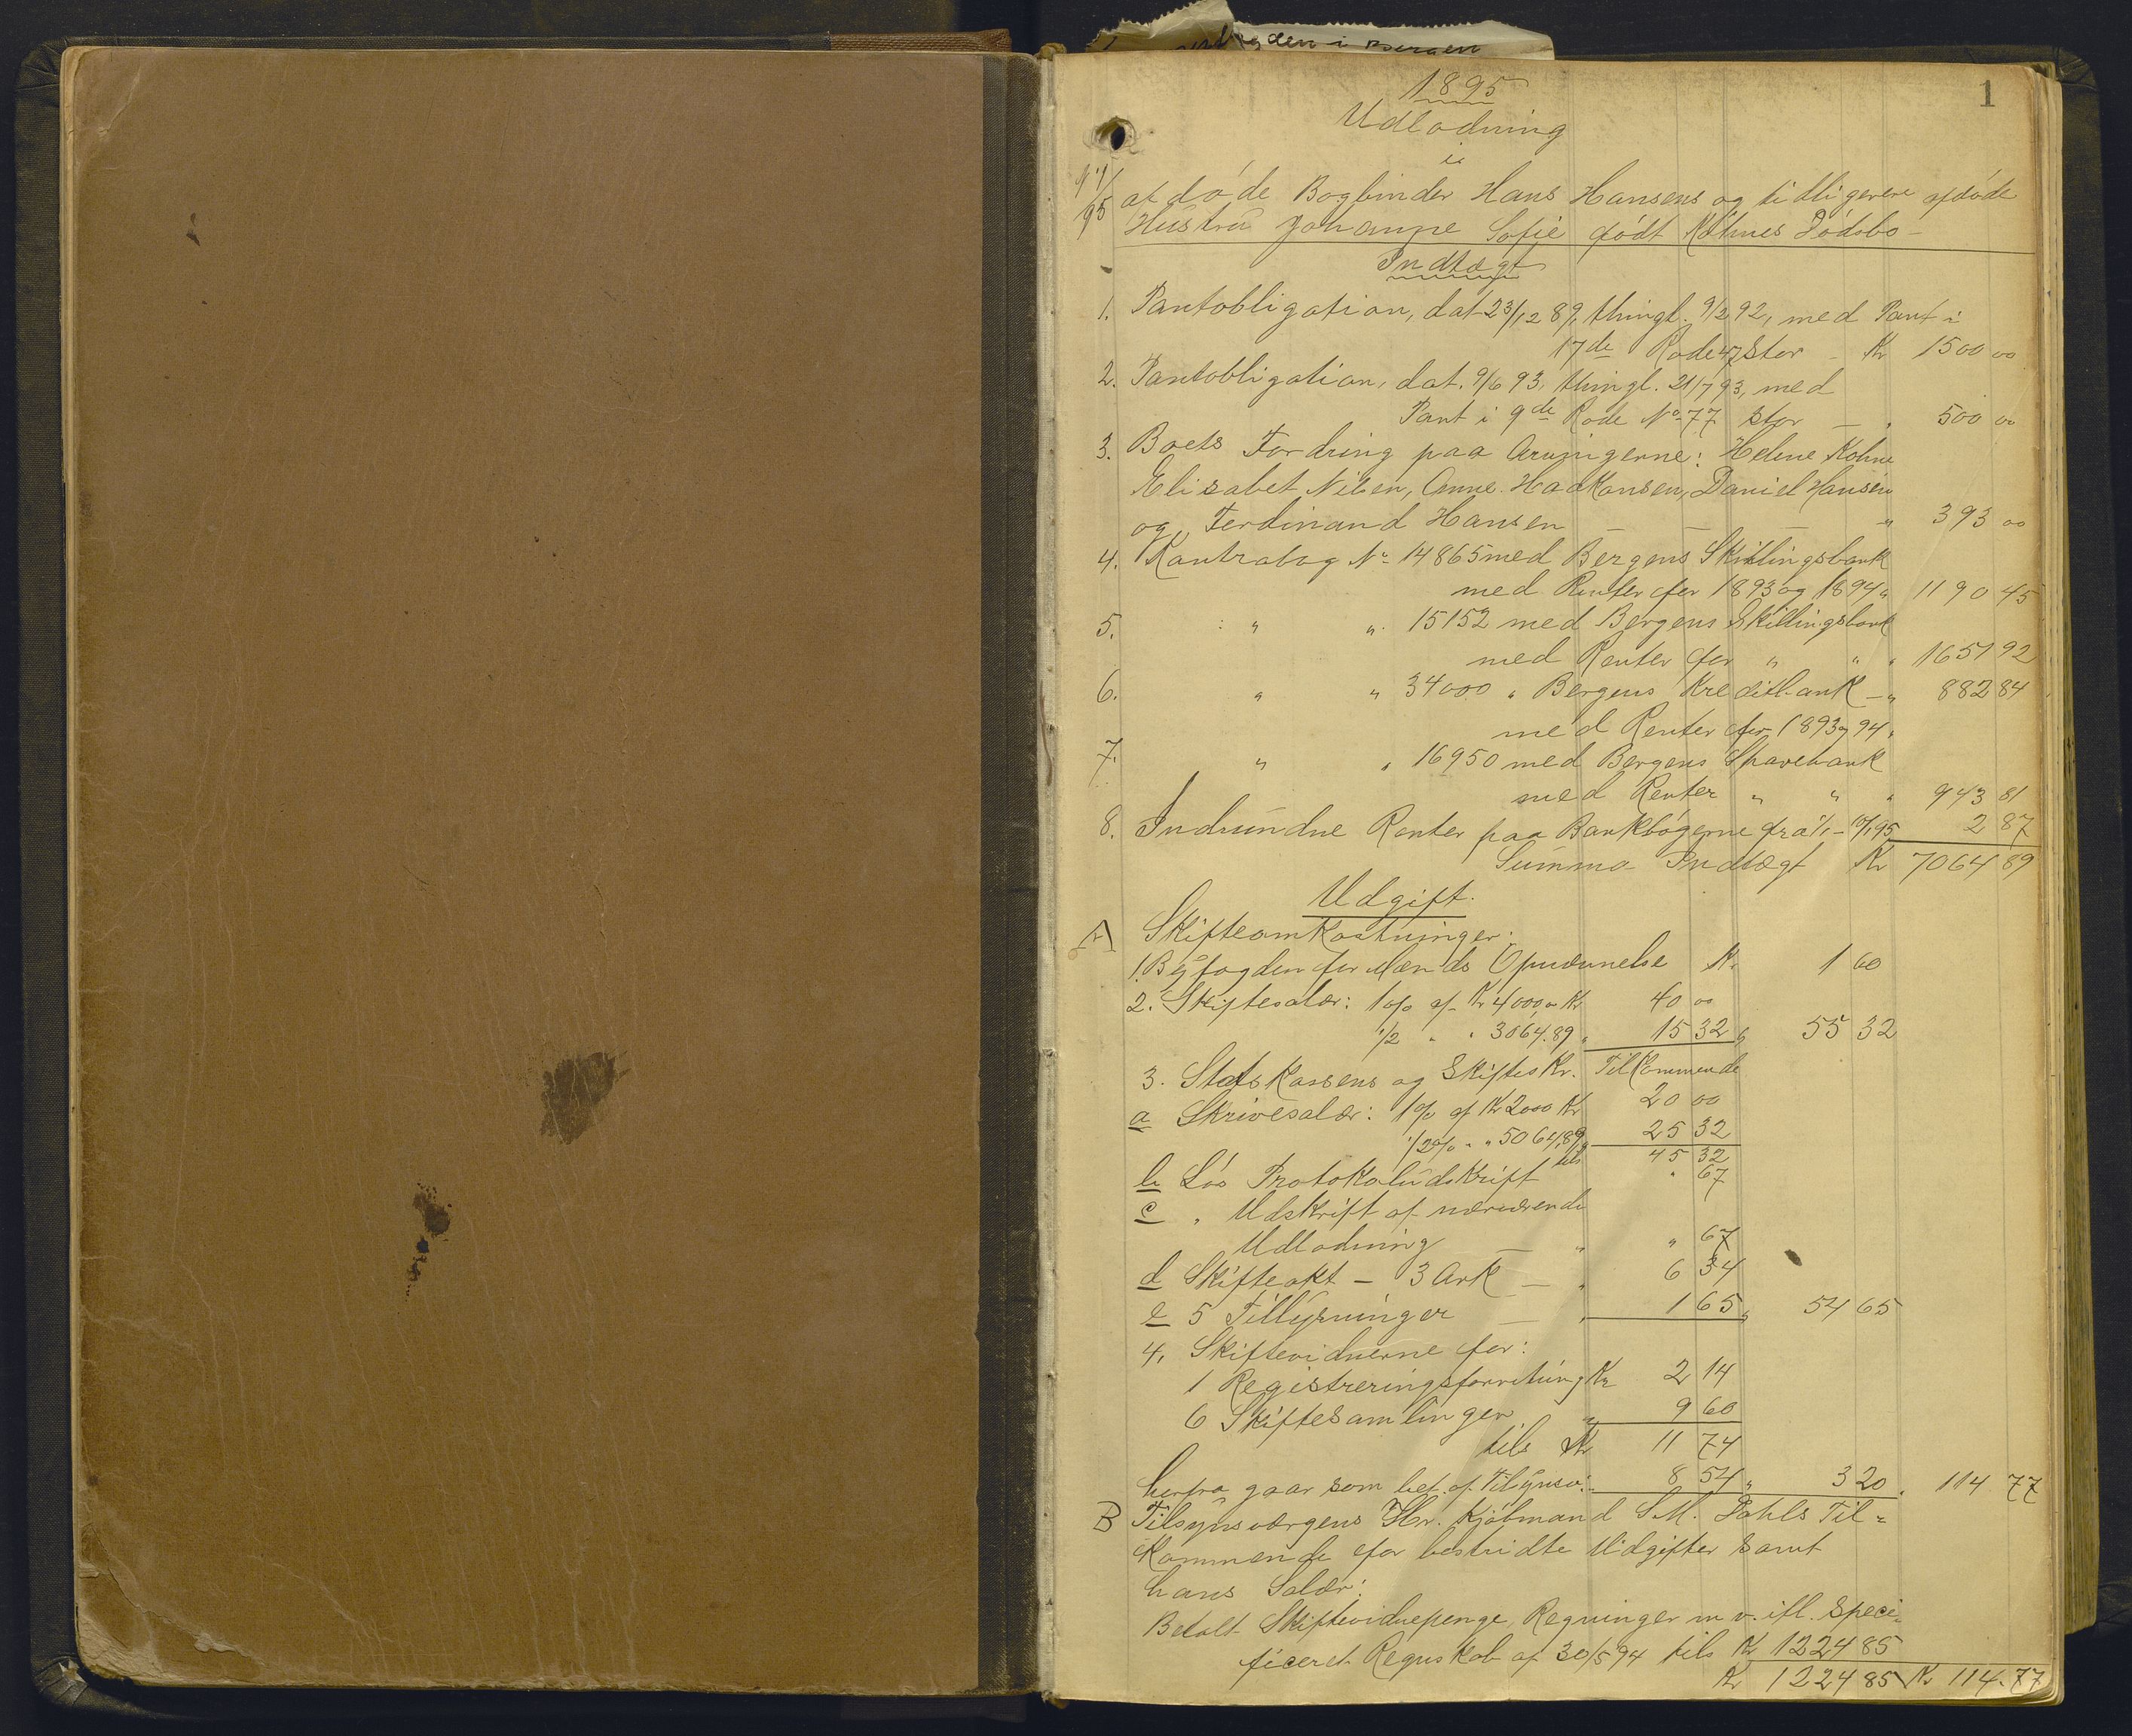 den i Bergen
1
1895
Udlodning
i
afdøde Bogbinder Hans Hansens og tidligere afdøde
Hustru Johanne Sofie født Kohnes Dødsbo
Indtægt
1. Pantobligation, dat. 23/12 89, thingl. 9/2 92, med Pant i
17de Rode 47 stor - Kr 1500 00
2. Pantobligation, dat. 9/6 93, thingl. 21/7 93, med
Pant i 9de Rode No 77 stor - " 500 00
3. Boets Fordring paa Arvingerne: Helene Kohne
Elisabet Nilsen, Anne Haakonsen, Daniel Hansen
og Ferdinand Hansen - - - " 393 00
4. Kontrabog No 14865 med Bergens Skillingsbank
med Renter for 1893 og 1894 " 1190 45
5. " " 15152 med Bergens Skillingsbank
med Renter for " " " 1651 92
6. " " 34000 " Bergens Kreditbank - " 882 84
med Renter for 1893 og 94.
7. " " 16950 med Bergens Sparebank
med Renter " " " 943 81
8. Indvundne Renter paa Bankbøgerne fra 1/1 - 10/1 95 2 87
Summa Indtægt Kr 7064 89
Udgift.
A Skifteomkostninger:
1. Byfogden for Mænds Opnævnelse Kr 1 60
2. Skiftesalær: 1 o/o af Kr 4000,00 Kr 40 00
1/2 " " 3064.89 " 15 32 " 55 32
3. Statskassens og Skifteskr. Tilkommende
a Skrivesalær: 1 o/o af Kr 2000 Kr 20 00
1/2 o/o " " 5064,89 " 25 32
tils 45 32
b Løs Protokoludskrift " 67
c " Udskrift af nærværende
Udlodning - " " 67
d Skifteakt - 3 Ark - " 6 34
e 5 Tillysninger - " 1 65 " 54 65
4. Skiftevidnerne for:
1 Registreringsforretning Kr 2 14
6 Skiftesamlinger " 9 60
tils Kr 11 74
herfra gaar som bet. af Tilsynsv: 8 54 " 3 20 " 114.77
B Tilsynsværgens Hr. Kjøbmand S.M. Dahls Til=
kommende for bestridte Udgifter samt
hans Salær:
Betalt Skiftevidnepenge, Regninger m. v. ifl. speci=
ficeret Regnskab af 30/5 94 tils Kr 1224 85
Kr 1224 85 Kr 114.77